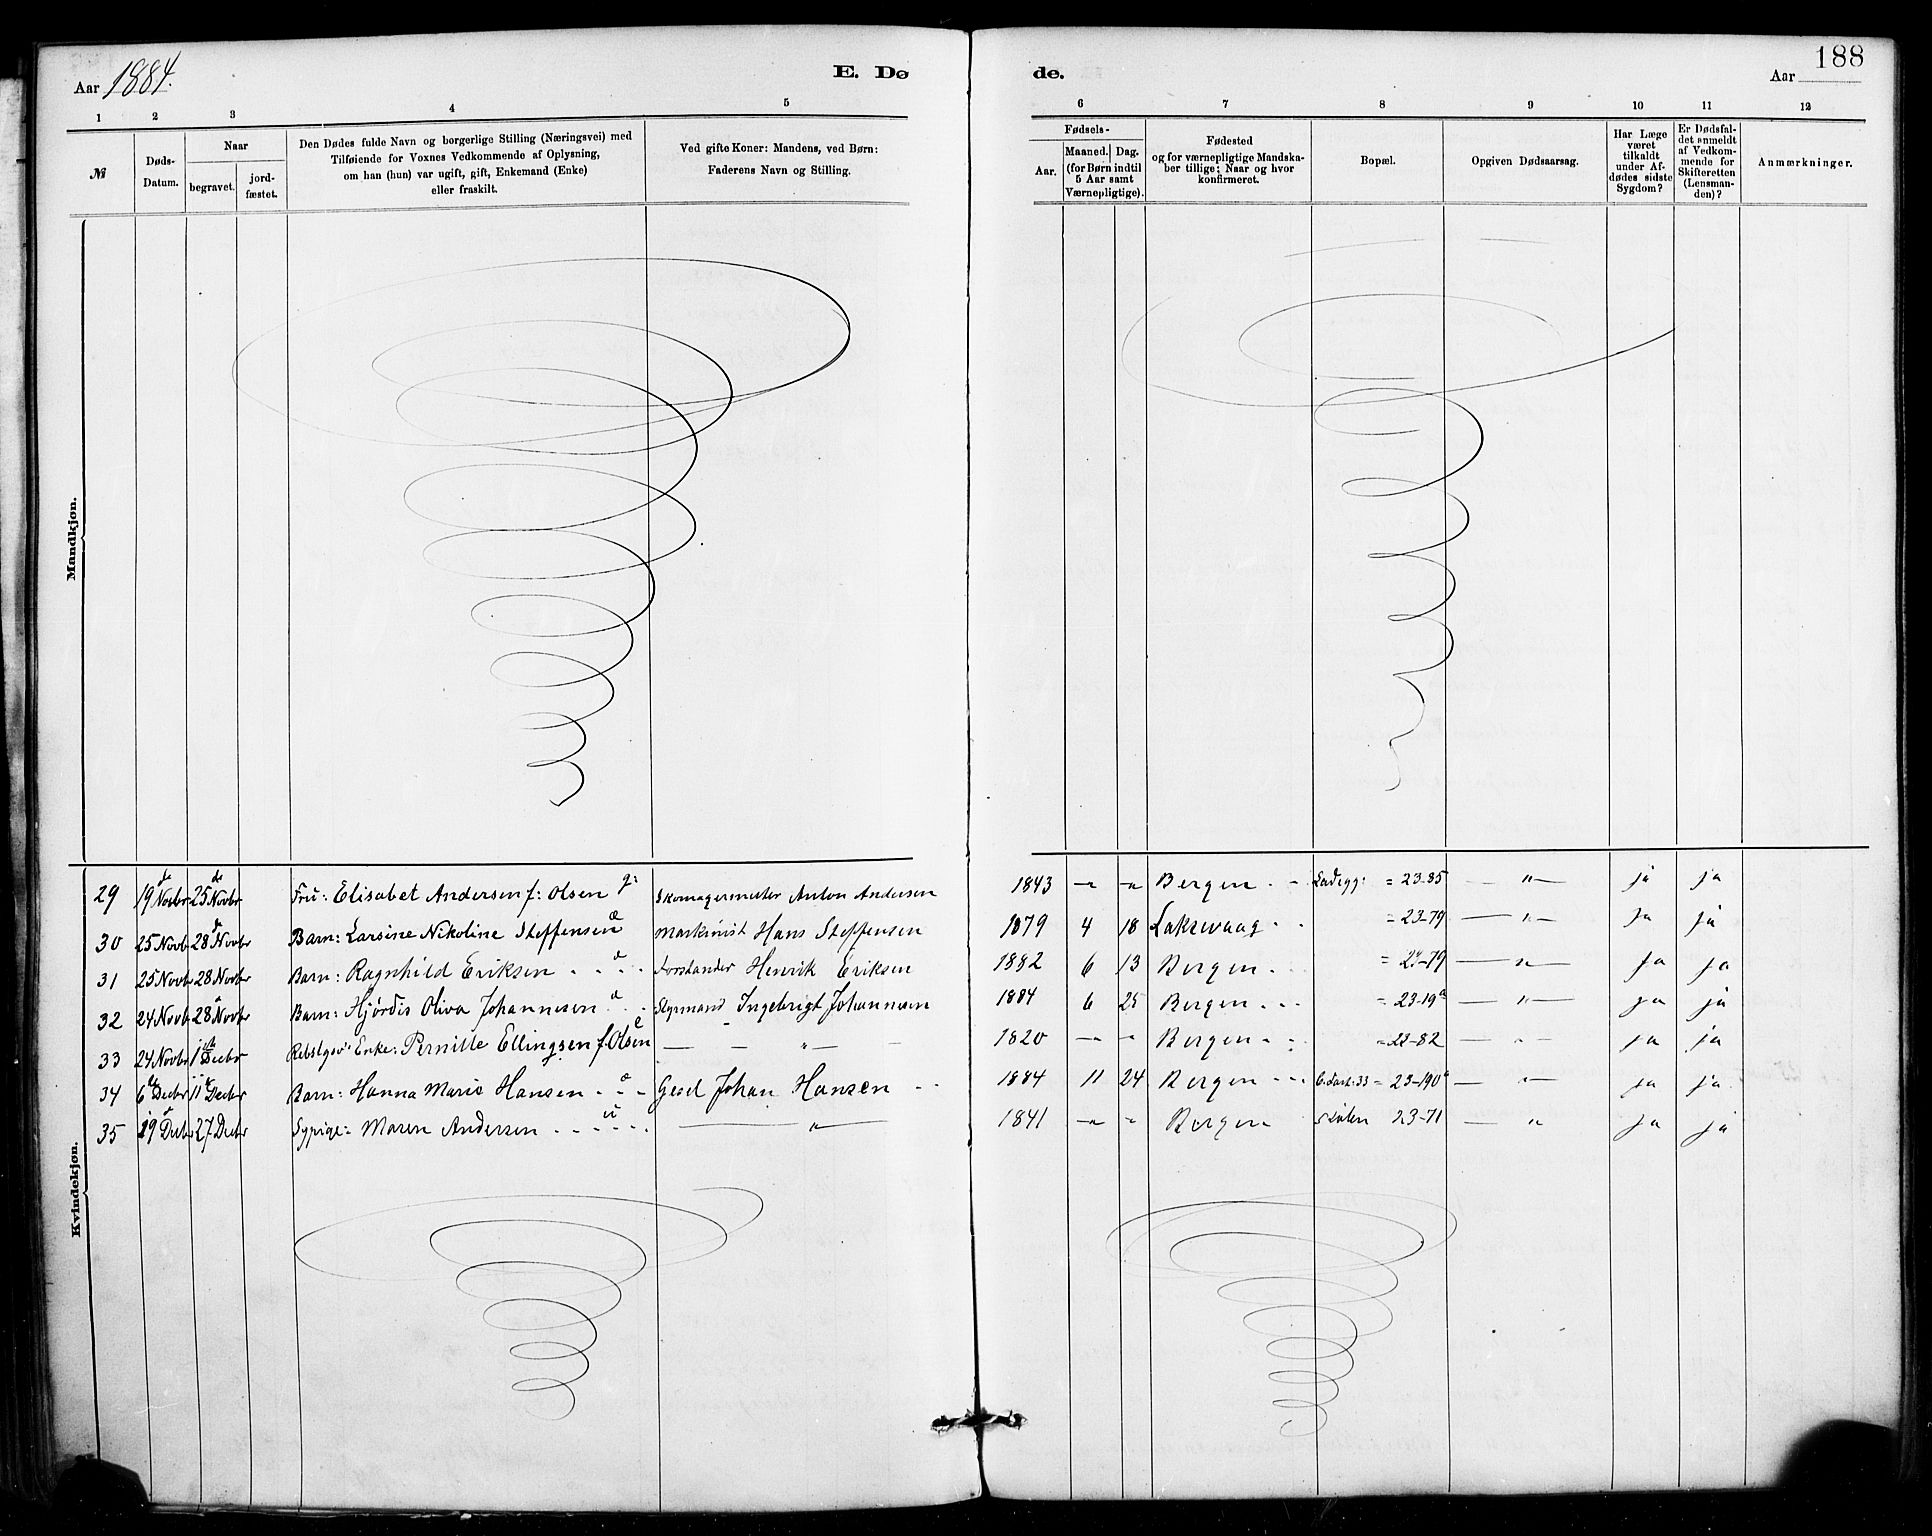 Aar 1884.
E. Dø
de.
Aar
188
1 2 3 4 5
6 7 8 9 10 11 12
№
Døds-
Datum.
Naar
begravet.
jord-
fæstet.
Den Dødes fulde Navn og borgerlige Stilling (Næringsvei) med
Tilføiende for Voxnes Vedkommende af Oplysning,
om han (hun) var ugift, gift, Enkemand (Enke)
eller fraskilt.
Ved gifte Koner: Mandens, ved Børn:
Faderens Navn og Stilling.
Fødsels-
Aar.
Maaned.
Dag.
(for Børn indtil
5 Aar samt
Værnepligtige).
Fødested
og for værnepligtige Mandska-
ber tillige; Naar og hvor
konfirmeret.
Bopæl.
Opgiven Dødsaarsag.
Har Læge
været
tilkaldt
under Af-
dødes sidste
Sygdom?
Er Dødsfal-
det anmeldt
af Vedkom-
mende for
Skifteretten
(Lensman-
den)?
Anmærkninger.
Mandkjøn.
Kvindekjøn.
29 19 Novbr 25 Novbr Fru: Elisabet Andersen f: Olsen g: Skomagermester Anton Andersen 1843 — " — " Bergen - - = 23-85 — " — ja ja
30 25 Novb 28 Novbr Barn: Larsine Nikoline Steffensen Maskinist Hans Steffensen 1879 4 18 Laksevaag - - = 23-79 — " — ja ja
31 25 Novb 28 Novbr Barn: Ragnhild Eriksen - - - Forstander Henrik Eriksen 1882 6 13 Bergen - = — " — ja ja
32 24 Novb 28 Novbr Barn: Hjørdis Oliva Johannesen - - Styrmand Ingebrigt Johannesen 1884 6 25 Bergen - - - = 23-19a — " — ja ja
33 24 Novbr 1 Decbr Enke: Pernille Ellingsen f. Olsen — — " — — 1820 — " " Bergen - - = 23-82 — " — ja ja
34 6 Decbr 11 Decbr Barn: Hanna Marie Hansen - - - Gesel Johan Hansen - - 1884 11 24 Bergen - - - = 23-190a — " — ja ja
35 19 Decbr 27 Decbr Sypige: Maren Andersen - - - - - — " — 1841 — " " Bergen 23-71 — " — ja ja